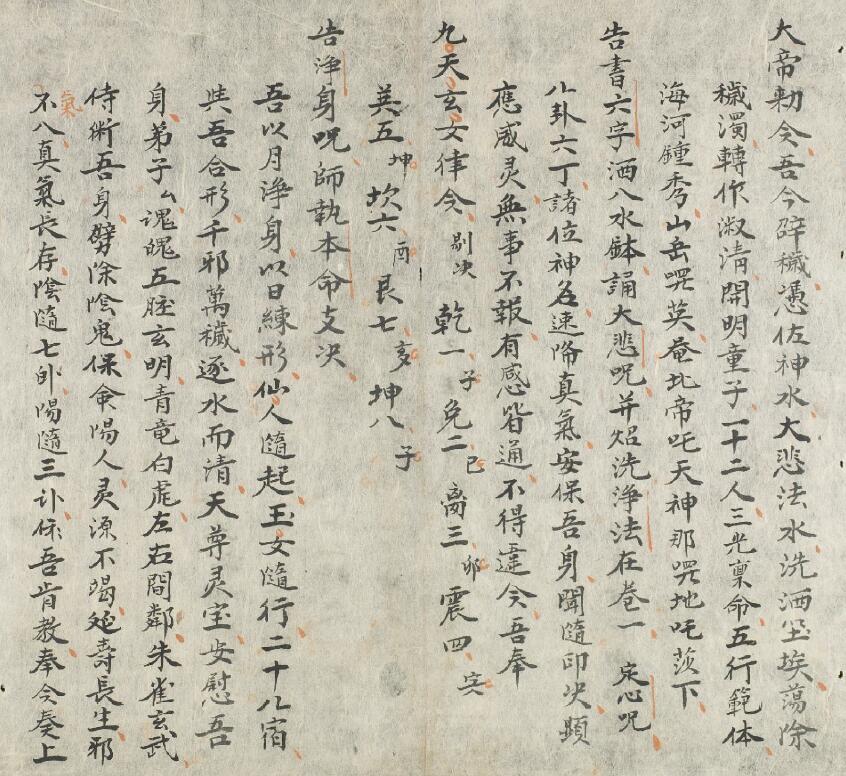 大帝勅令吾今碎穢憑佐神水大悲法水洗洒坌埃蕩除
穢濁轉作淑清開明童子一十二人三光稟命五行範体
海河鍾秀山岳㖿英菴北帝吒天神那㖿地吒莎下
告書六字洒八水鉢誦大悲咒并炤洗淨法在卷一 定心咒
八卦六丁諸位神各速降真氣安保吾身聞隨印決顕
應感灵無事不報有感皆通不得違令吾奉
九天玄女律令 別決 乾一 子 兌二 巳 离三 卯 震四 寅
巽五 坤 坎六 酉 艮七 亥 坤八 子
告淨身咒師執本命支決
吾以月淨身以日練形仙人隨起玉女隨行二十八宿
共吾合形千邪萬穢逐水而清天尊灵宝安慰吾
身弟子厶魂魄五臟玄明青竜白虎左右間鄰朱雀玄武
侍衛吾身劈除陰鬼保命陽人灵源不竭延壽長生邪
氣不入真氣長存陰隨七卦陽隨三卦依吾肯教奉令奏上